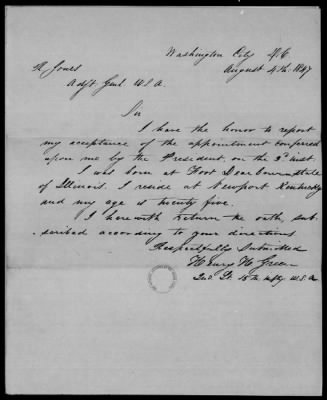 Washington City D.C
August 4th. 1847
R Jones
Adjt Genl. U.S.A.
Sir
I have the honor to report
my acceptance of the appointment conferred
upon me by the President, on the 3d inst.
I was born at Fort Dearborn state
of Illinois. I reside at Newport Kentucky
and my age is twenty five.
I herewith return the oath, sub-
scribed according to your directions
Respectfully Submitted
Henry H Green
2nd. Lt. 15th Infty U.S.A.